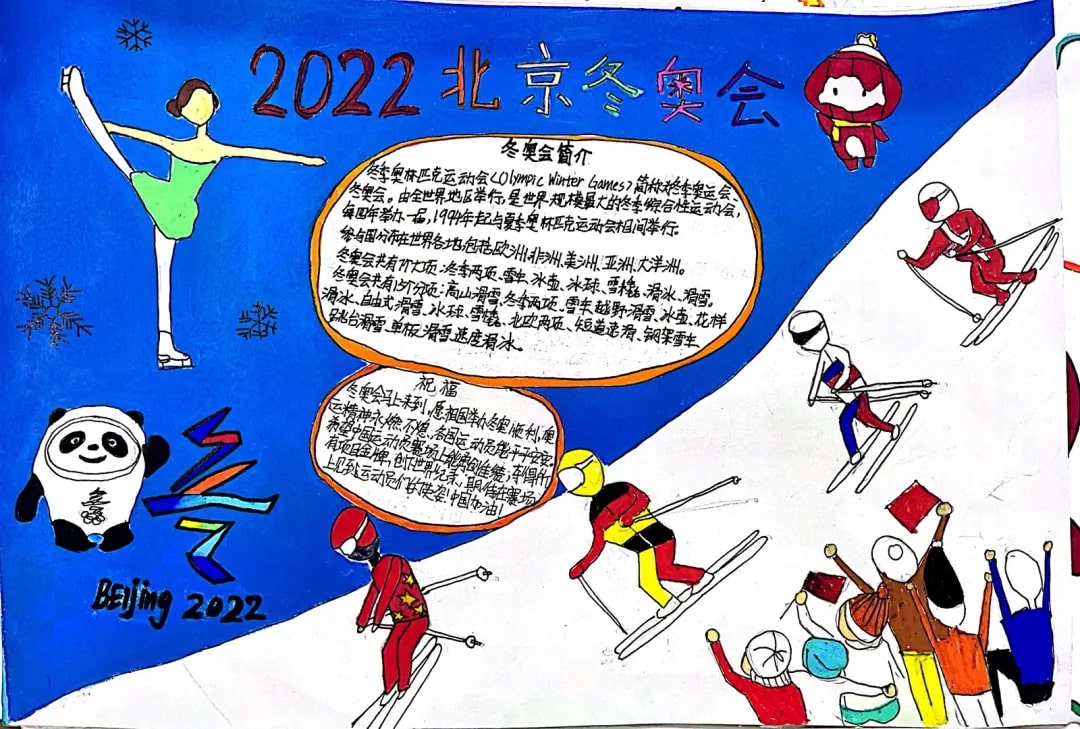 2022北京冬奥会
冬奥会简介
冬季奥林匹克运动会(Olympic Winter Games)简称为冬季奥运会、
冬奥会。由全世界地区举行,是世界规模最大的冬季综合性运动会,
每四年举办一届,1994年起与夏季奥林匹克运动会相间举行。
参与国分布在世界各地,包括欧洲、非洲、美洲、亚洲、大洋洲。
冬奥会共有7大项:冬季两项、雪车、冰壶、冰球、雪橇、滑冰、滑雪。
冬奥会共有15个分项:高山滑雪、冬季两项、雪车、越野滑雪、冰壶、花样
滑冰、自由式滑雪、冰球、雪橇、北欧两项、短道速滑、钢架雪车、
跳台滑雪、单板滑雪、速度滑冰。
祝福
冬奥会马上来到,愿祖国举办冬奥顺利,奥
运精神永燃不熄,各国运动员能平平安安,
希望中国运动员赛场上能再创佳绩,夺得所
有项目金牌,创下世界纪录,期待在赛场
上见到运动员们的英姿!中国加油!
冬
BEijing 2022